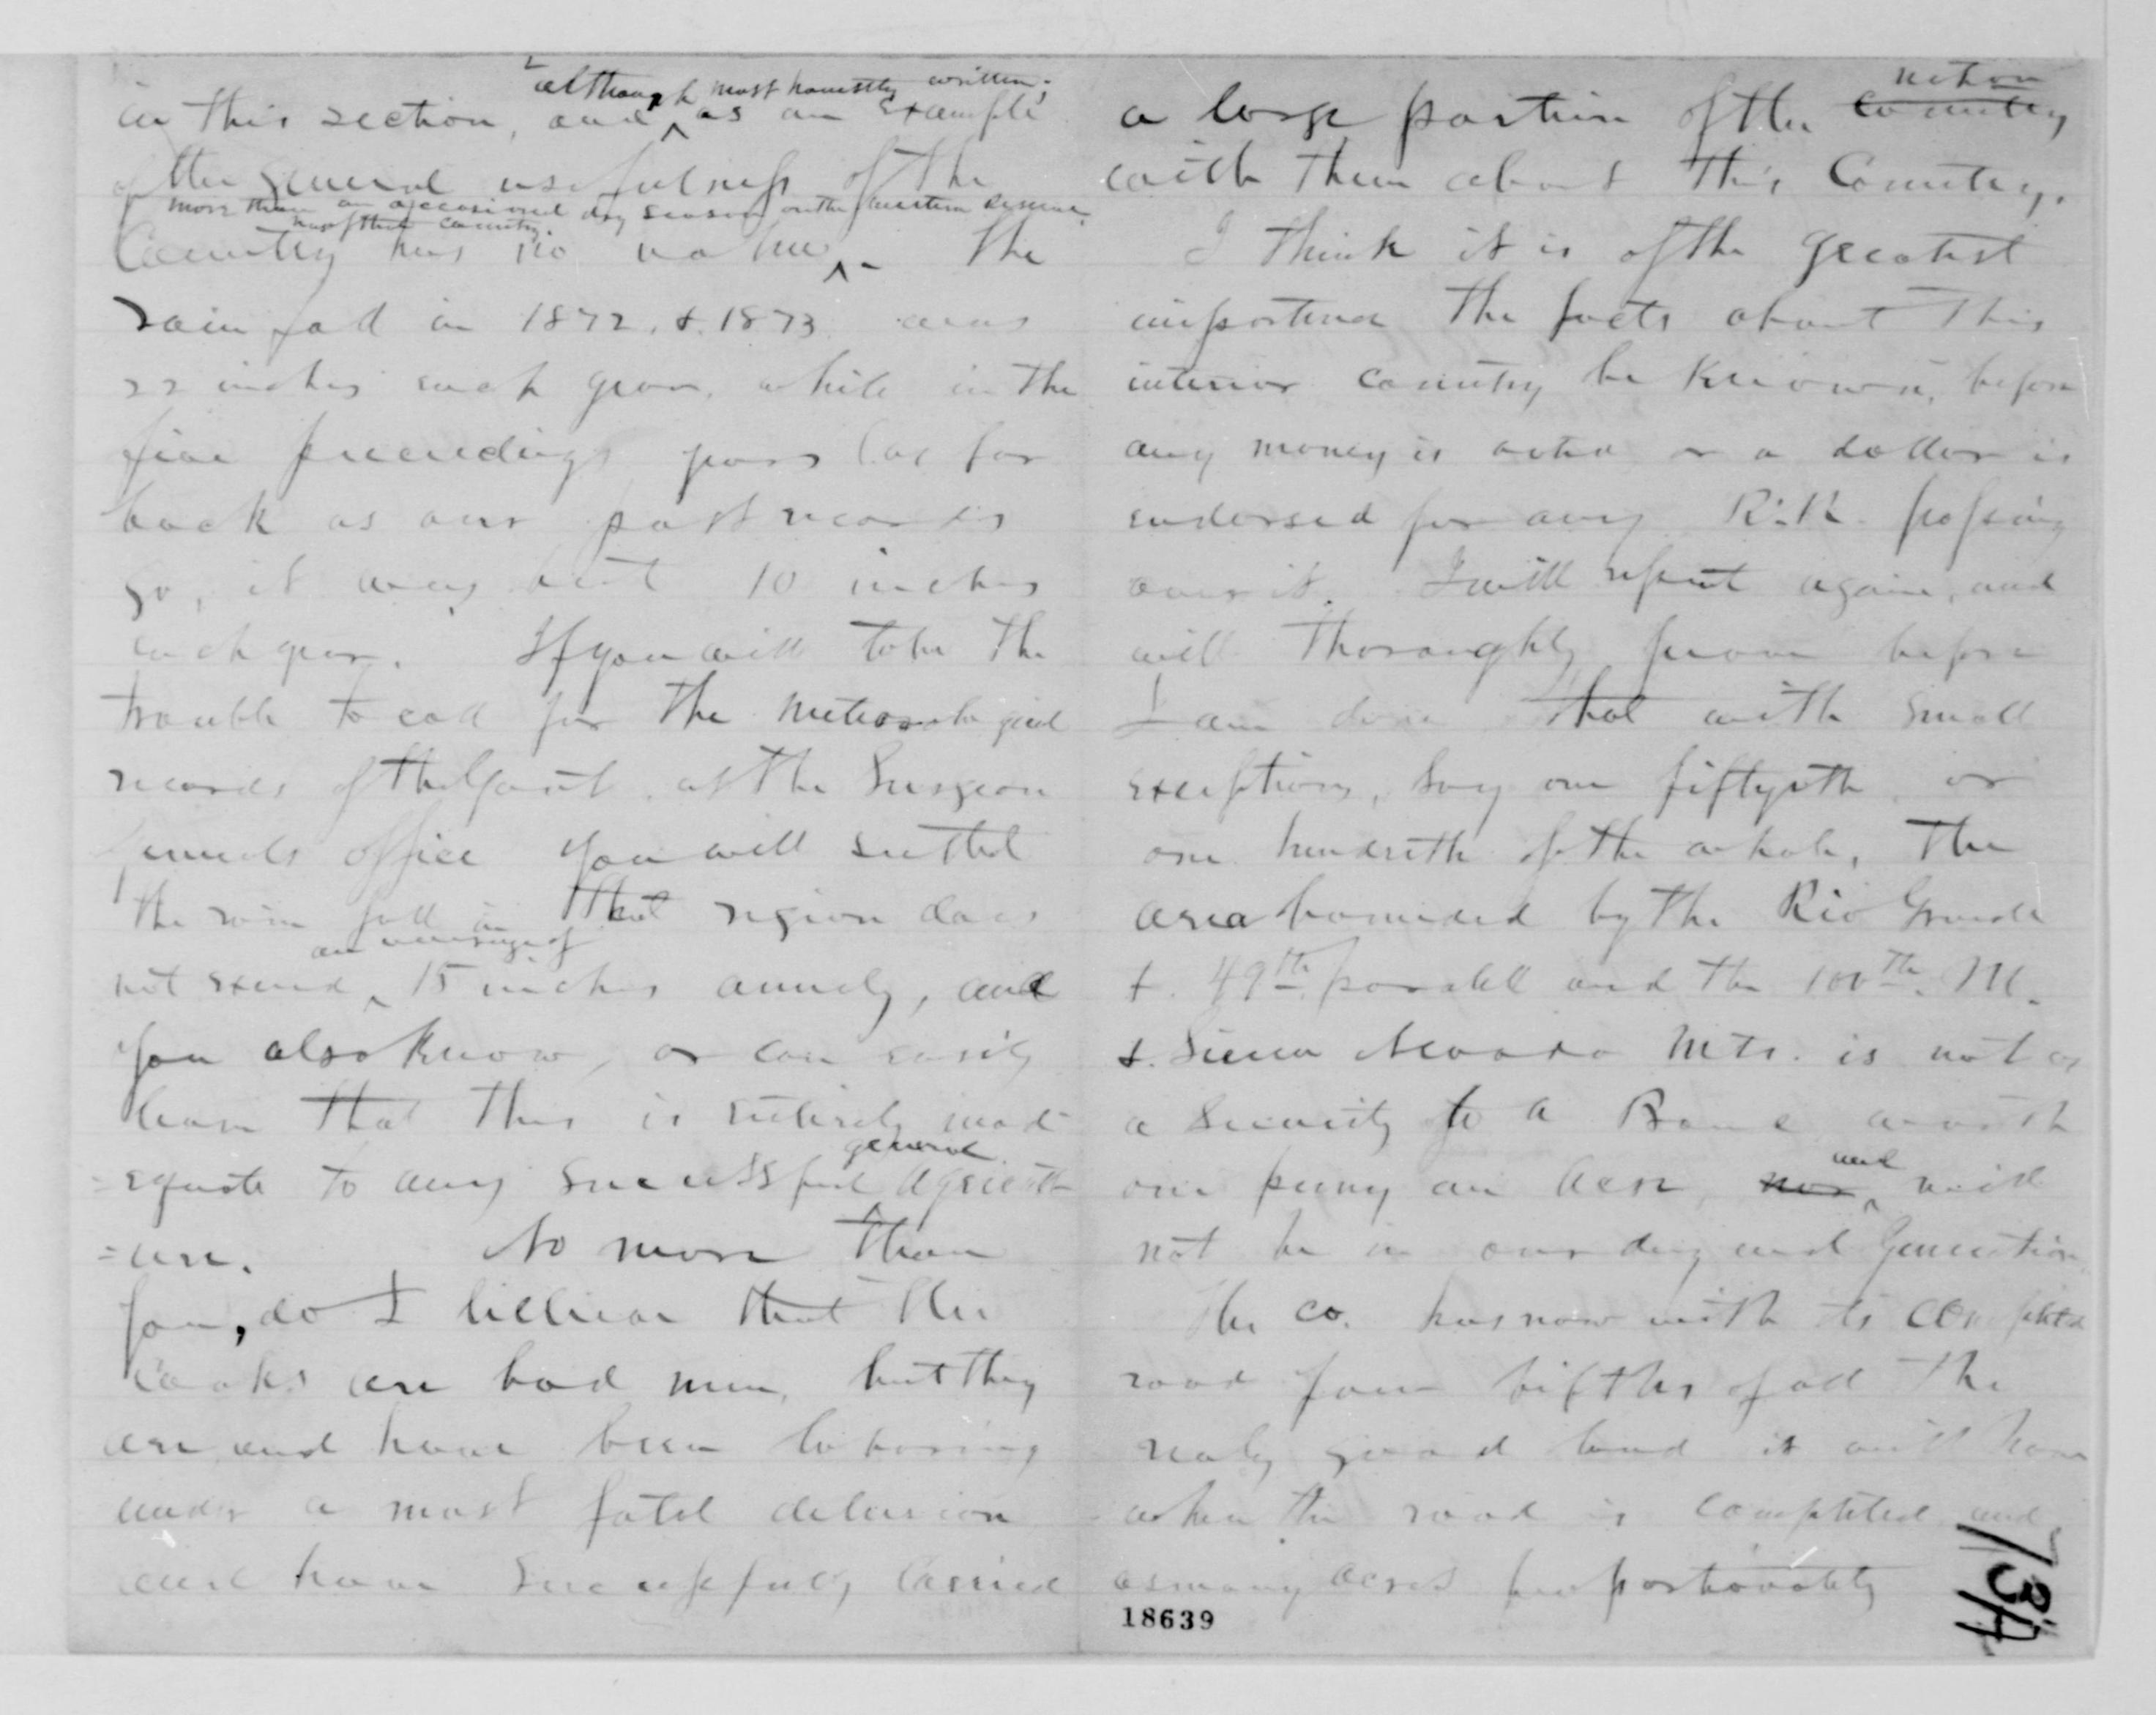 although most honestly written;
in this section, and ^ as an example
of the general usefulness of the
more than an occasional dry season on the
Country has no value ^. The
rain fall in 1872. & 1873 was
22 inches each year, while in the
five preceedings years (as far
back as our post records
go, it was but 10 inches
each year. If you will take the
trouble to call for the meteorological
records of the post, at the Surgeon
Generals office you will see that
the rain fall in that region does
an average of
not exceed ^ 15 inches annuly, and
you also know, or can easily
learn that this is entirely inad-
=equate to any successful
general
^ agricult
=ure. No more than
you, do I believe that the
Cooks are bad men, but they
are and have been laboring
under a most fatal delusion
and have successfully carried
nation
a large portion of the country
with them about this Country.
I think it is of the greatest
importance the facts about this
interior country be known, before
any money is voted or a dollar is
endorsed for any R.R. passing
over it. I will repeat again, and
will thoroughly prove before
I am done that with small
exceptions, say one fiftyeth or
one hundreth of the whole, the
area bounded by the Rio Grande
& 49th parallel and the 100th M.
& Sierra Nevada Mts. is not as
a Security to a Bond worth
one penny an acre, nor ^ and will
not be in our day and Generation
The co. has now with its completed
road four fifths of all the
realy good land it will have
when the road is completed and
as many acres proportionately
18639
13/1